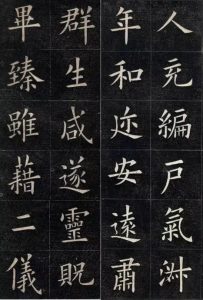 人充編戶氣淑
年和迩安遠肅
群生咸遂靈貺
畢臻雖藉二儀